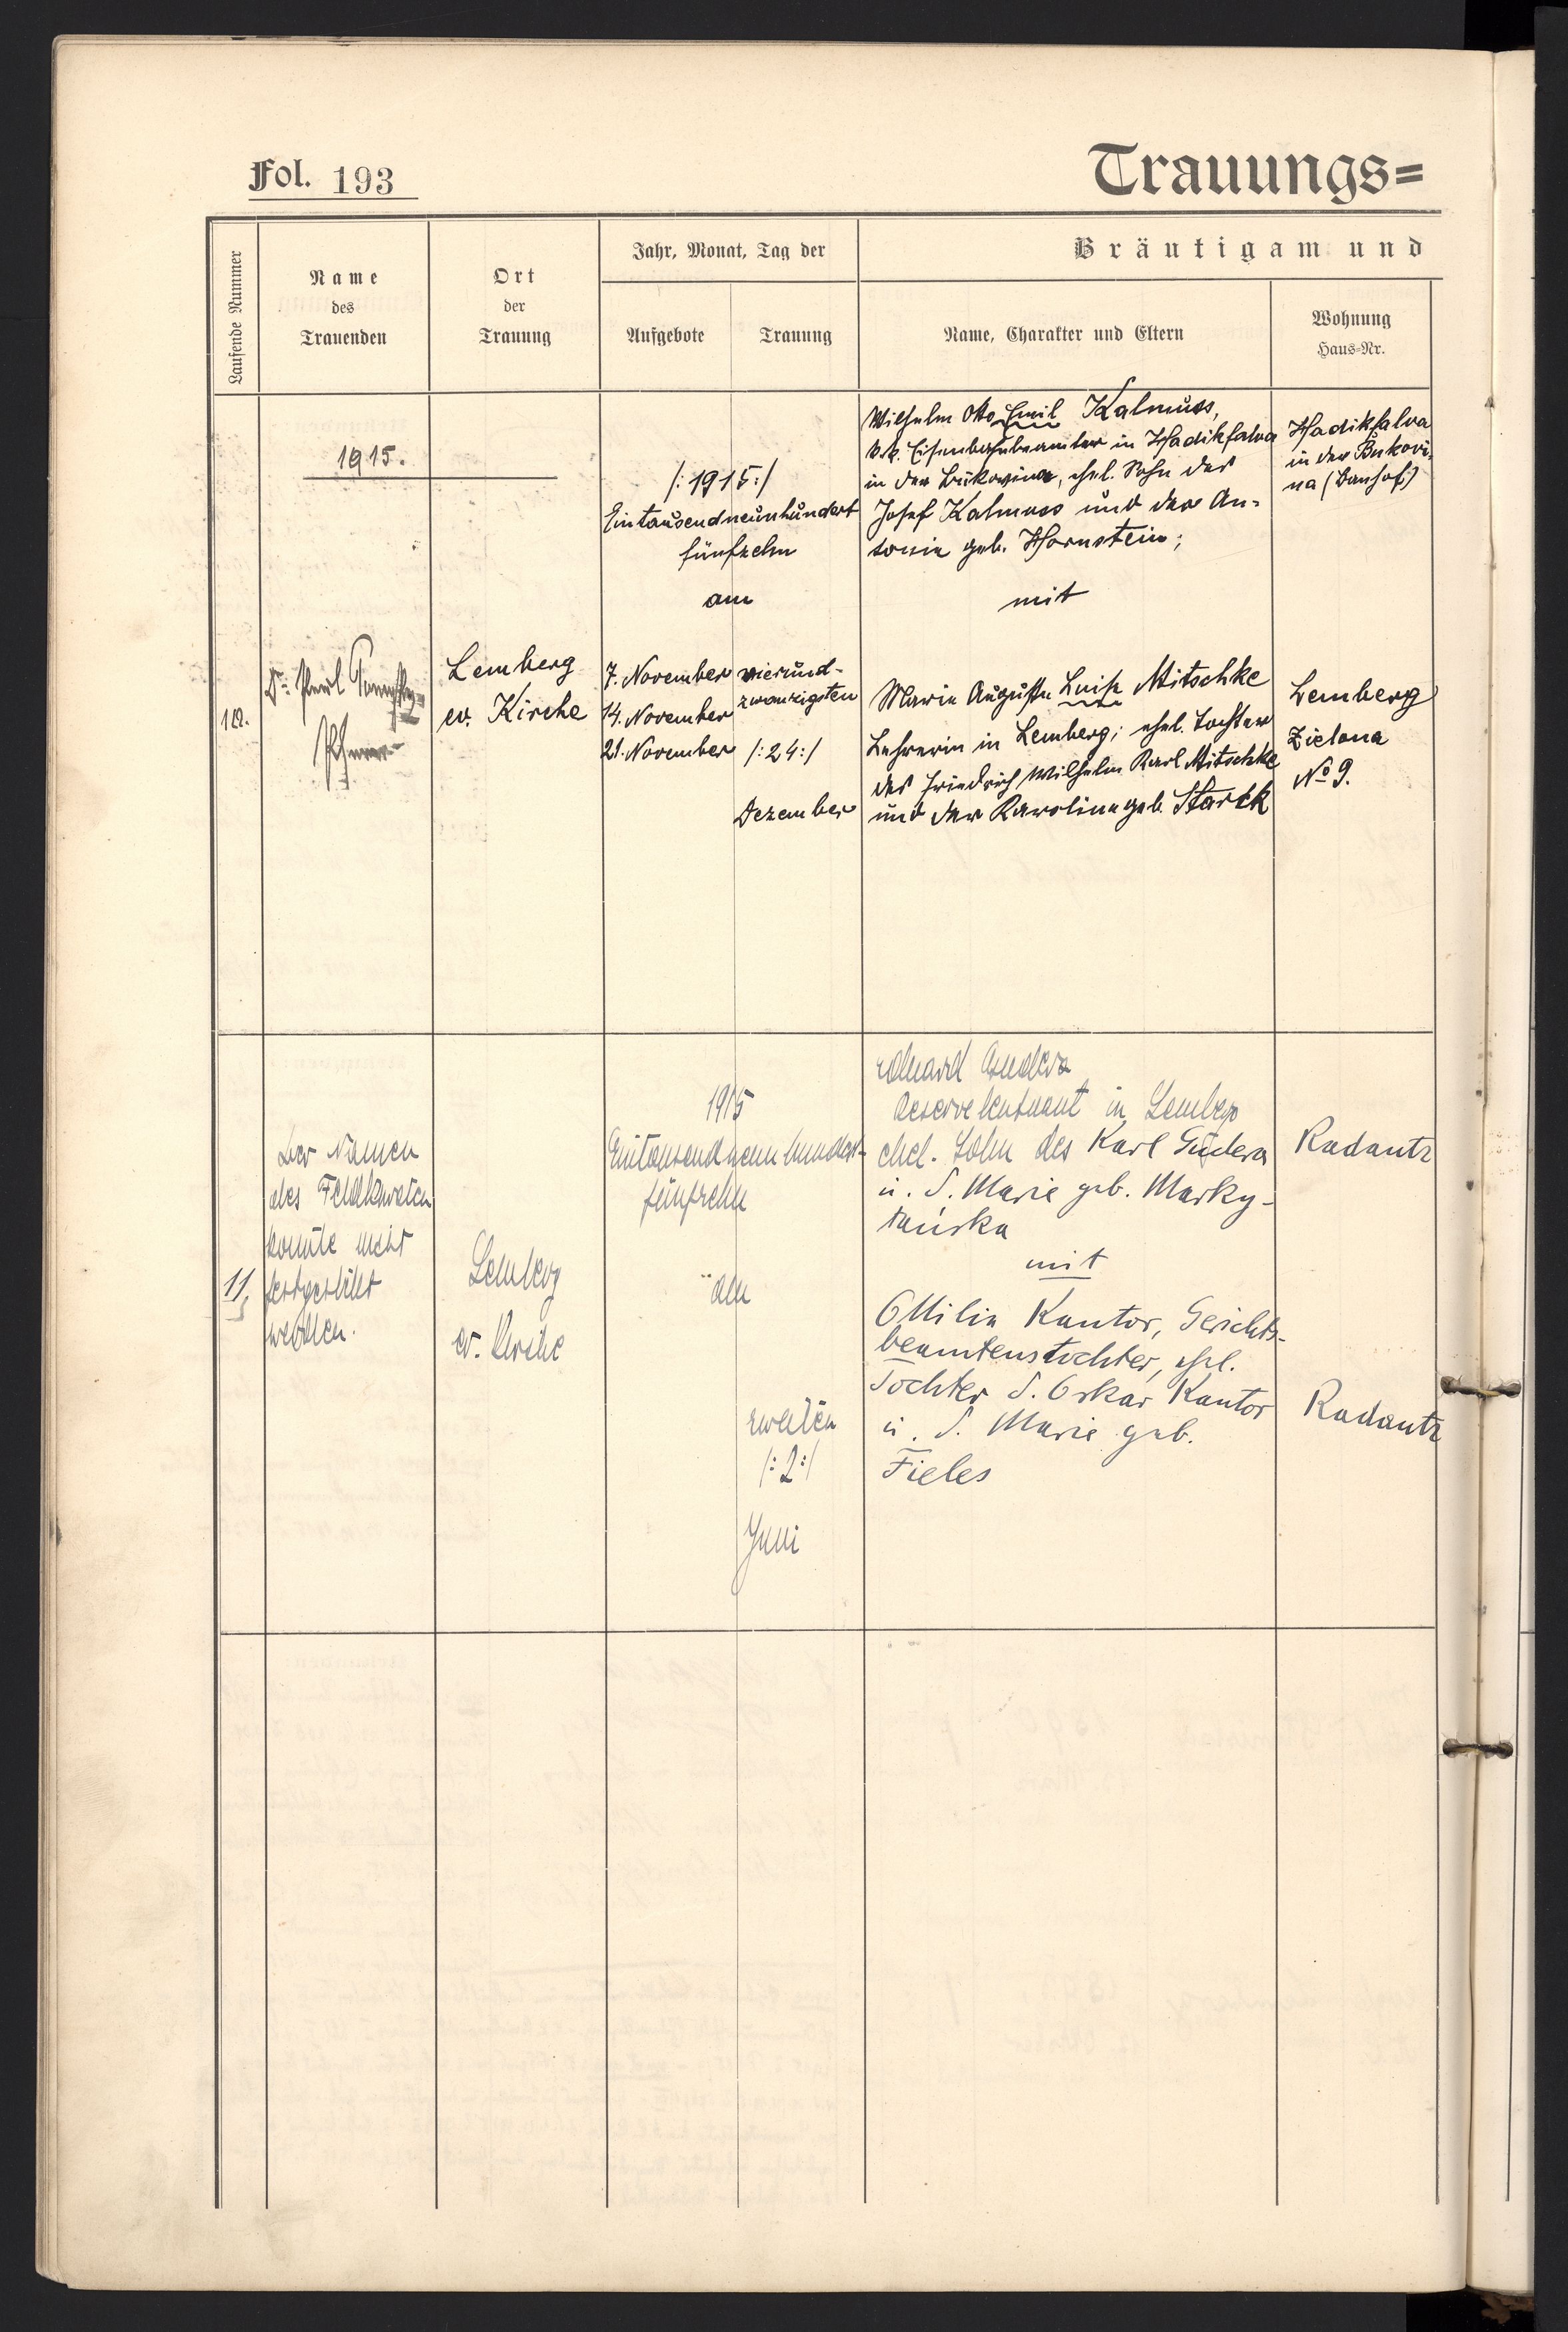 Fol. 193
Trauungs=
Laufende Nummer
Name
des
Trauenden
Ort
der
Trauung
Jahr, Monat, Tag der
Aufgebote
Trauung
Bräutigam und
Name, Charakter und Eltern
Wohnung
Haus-Nr.
1915.
/:1915:/
Eintausendneunhundert
fünfzehn
am
Wilhelm Otto Emil Kalmuss,
k.k. Eisenbahnbeamter in Hadikfalva
in der Bukowina, ehel. Sohn des
Josef Kalmuss und der An-
tonie geb. Hornstein;
mit
Hadikfalva
in der Bukovi-
na (Banhof)
10.
Dr. Paul
Lemberg
ev. Kirche
7. November
14. November
21. November
vierund-
zwanzigsten
/:24:/
Dezember
Marie Auguste Luise Mitschke
Lehrerin in Lemberg; ehel. Tochter
des Friedrich Wilhelm Karl Mitschke
und der Karoline geb. Starck
Lemberg
Zielona
No 9.
11.
Der Namen
des Feldkuraten
konnte nicht
festgestellt
werden.
Lemberg
ev. Kirche
1915
Eintausendneunhundert-
fünfzehn
am
zweiten
/:2:/
Juni
Eduard Gudera
Reserveleutnant in Lemberg
ehel. Sohn des Karl Gudera
u. d. Marie geb. Marky-
tańska
mit
Ottilie Kantor, Gerichts-
beamtenstochter, ehel.
Tochter d. Oskar Kantor
u. d. Marie geb.
Fieles
Radautz
Radautz